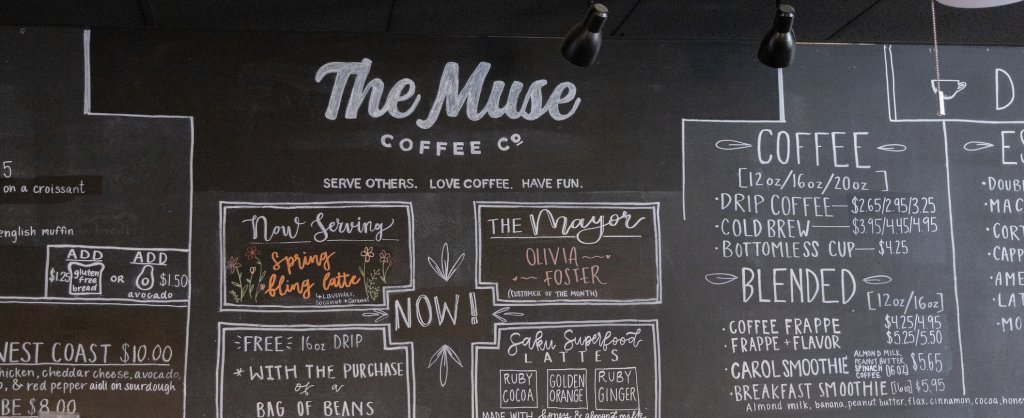 The Muse
COFFEE CO
SERVE OTHERS. LOVE COFFEE. HAVE FUN.
5
on a croissant
english muffin
ADD
$1.25 gluten free bread
OR
ADD
avocado
$1.50
WEST COAST $10.00
chicken, cheddar cheese, avocado,
& red pepper aioli on sourdough
BE $8.00
Now Serving
Spring
fling latte
Lavender,
Coconut + Caramel
THE Mayor
OLIVIA
FOSTER
(CUSTOMER OF THE MONTH)
NOW!
FREE 16oz DRIP
* WITH THE PURCHASE
of a
BAG OF BEANS
Saku Superfood
LATTE'S
RUBY COCOA
GOLDEN ORANGE
RUBY GINGER
MADE WITH honey & almond milk
COFFEE
[12oz/16oz/20oz]
· DRIP COFFEE — $2.65/2.95/3.25
· COLD BREW — $3.95/4.45/4.95
· BOTTOMLESS CUP — $4.25
BLENDED
[12oz/16oz]
· COFFEE FRAPPE $4.25/4.95
· FRAPPE + FLAVOR $5.25/5.50
· CAROL SMOOTHIE ALMOND MILK PEANUT BUTTER SPINACH COFFEE (16oz) $5.65
· BREAKFAST SMOOTHIE [16oz] $5.95
Almond milk, banana, peanut butter, flax, cinnamon, cocoa, hone
D
ES
· DOUB
· MAC
· CORT
· CAPP
· AME
· LAT
· MO